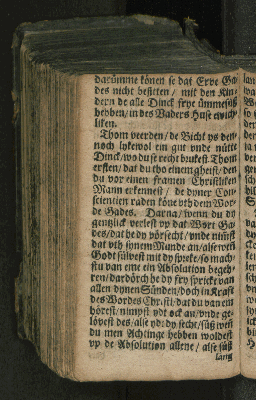 darümme könen se dat Erve Ga-
des nicht besitten / mit den Kin-
dern de alle Dinck frye ümmesüß
hebben / in des Vaders Huse
liken.
Thom veerden / de Bicht ys den-
noch lykewol ein gut vnde nütte
Dinck / wo du se recht brukest Thom
ersten / dat du tho einem gheist / den
du vor einen framen Christliken
Mann erkennest / de dyner Con-
scientien raden köne vth dem Wor-
de Gades. Darna / wenn du dy
gentzlick verlest vp dat Wort Ga-
des / dat he dy vörsecht / vnde nimst
dat vth synem Mande an / alse wen
Godt sülvest mit dy spreke / so mach-
stu van eme ein Absolution begeh-
ren / dardörch he dy fry spricke van
allen dynen Sünden / doch in Krafft
des Wordes Christi / dat du van em
hörest / nimpst ydt ock an / vnde ge-
lövest des / alse yd dy secht / süß wen
du men Achtinge hebben woldest
vp de Absolution allene / alse süß
lang